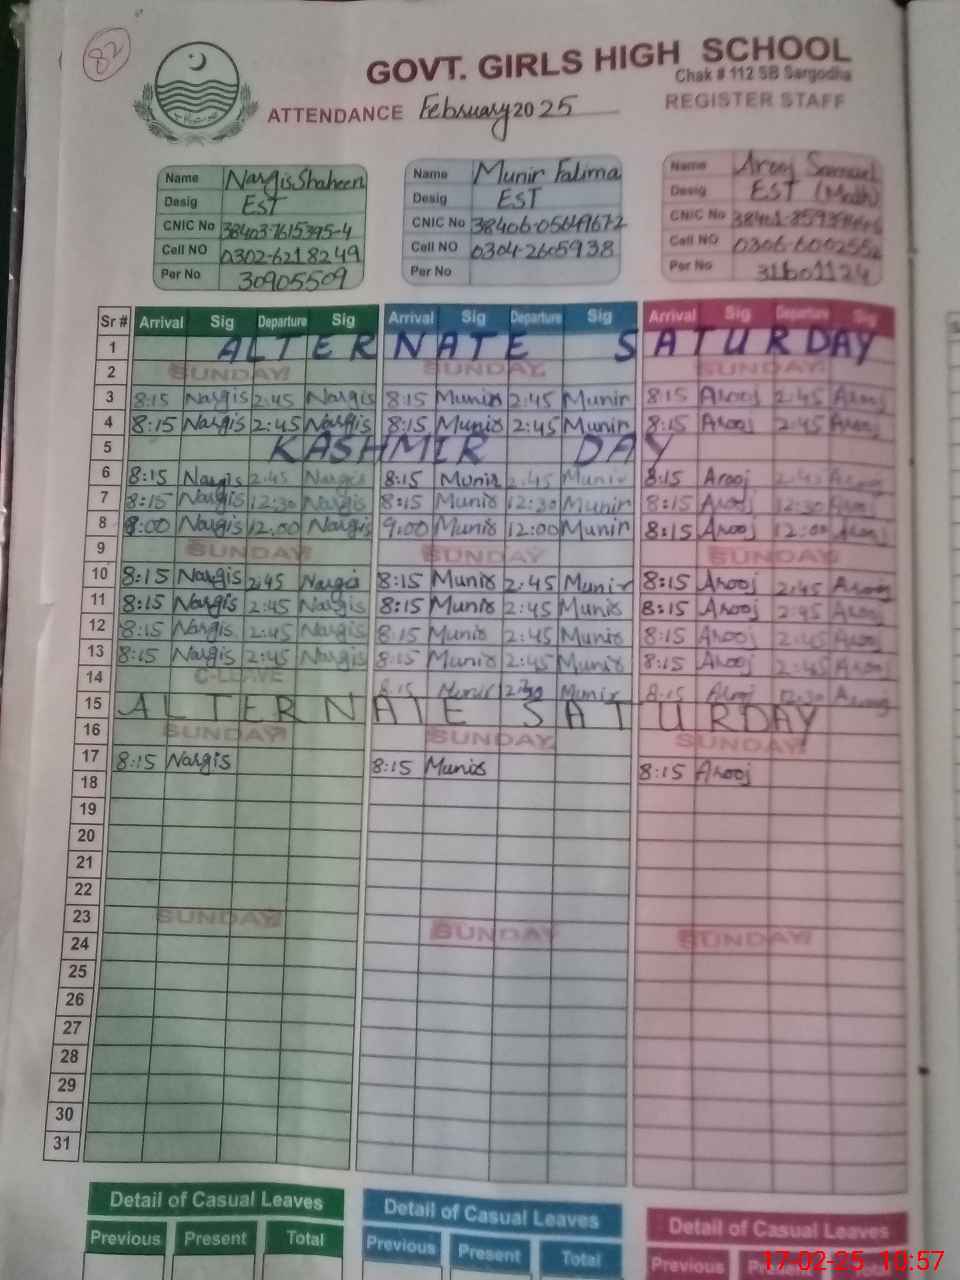 82
GOVT. GIRLS HIGH SCHOOL
Chak # 112 SB Sargodha
ATTENDANCE February 2025 REGISTER STAFF
Name Nargis Shaheen Name Munir Fatima Name Arooj
Desig EST Desig EST Desig EST (Math)
CNIC No 38403-7615395-4 CNIC No CNIC No
Cell NO 0302-6218249 Cell NO 0304-2605938 Cell NO
Per No 30905509 Per No Per No 31601124
Sr # Arrival Sig Departure Sig Arrival Sig Departure Sig Arrival Sig Departure Sig
1 ALTERNATE SATURDAY
2 SUNDAY SUNDAY SUNDAY
3 8:15 Nargis 2:45 Nargis 8:15 Munir 2:45 Munir 8:15 Arooj 2:45 Arooj
4 8:15 Nargis 2:45 Nargis 8:15 Munir 2:45 Munir 8:15 Arooj 2:45 Arooj
5 KASHMIR DAY
6 8:15 Nargis 2:45 Nargis 8:15 Munir 2:45 Munir 8:15 Arooj 2:45 Arooj
7 8:15 Nargis 12:30 Nargis 8:15 Munir 12:30 Munir 8:15 Arooj 12:30 Arooj
8 9:00 Nargis 12:00 Nargis 9:00 Munir 12:00 Munir 8:15 Arooj 12:00 Arooj
9 SUNDAY SUNDAY SUNDAY
10 8:15 Nargis 2:45 Nargis 8:15 Munir 2:45 Munir 8:15 Arooj 2:45 Arooj
11 8:15 Nargis 2:45 Nargis 8:15 Munir 2:45 Munir 8:15 Arooj 2:45 Arooj
12 8:15 Nargis 2:45 Nargis 8:15 Munir 2:45 Munir 8:15 Arooj 2:45 Arooj
13 8:15 Nargis 2:45 Nargis 8:15 Munir 2:45 Munir 8:15 Arooj 2:45 Arooj
14 C-LEAVE 8:15 Munir 12:30 Munir 8:15 Arooj 12:30 Arooj
15 ALTERNATE SATURDAY
16 SUNDAY SUNDAY SUNDAY
17 8:15 Nargis 8:15 Munir 8:15 Arooj
18
19
20
21
22
23 SUNDAY SUNDAY SUNDAY
24
25
26
27
28
29
30
31
Detail of Casual Leaves Detail of Casual Leaves Detail of Casual Leaves
Previous Present Total Previous Present Total Previous Present
17-02-25 10:57